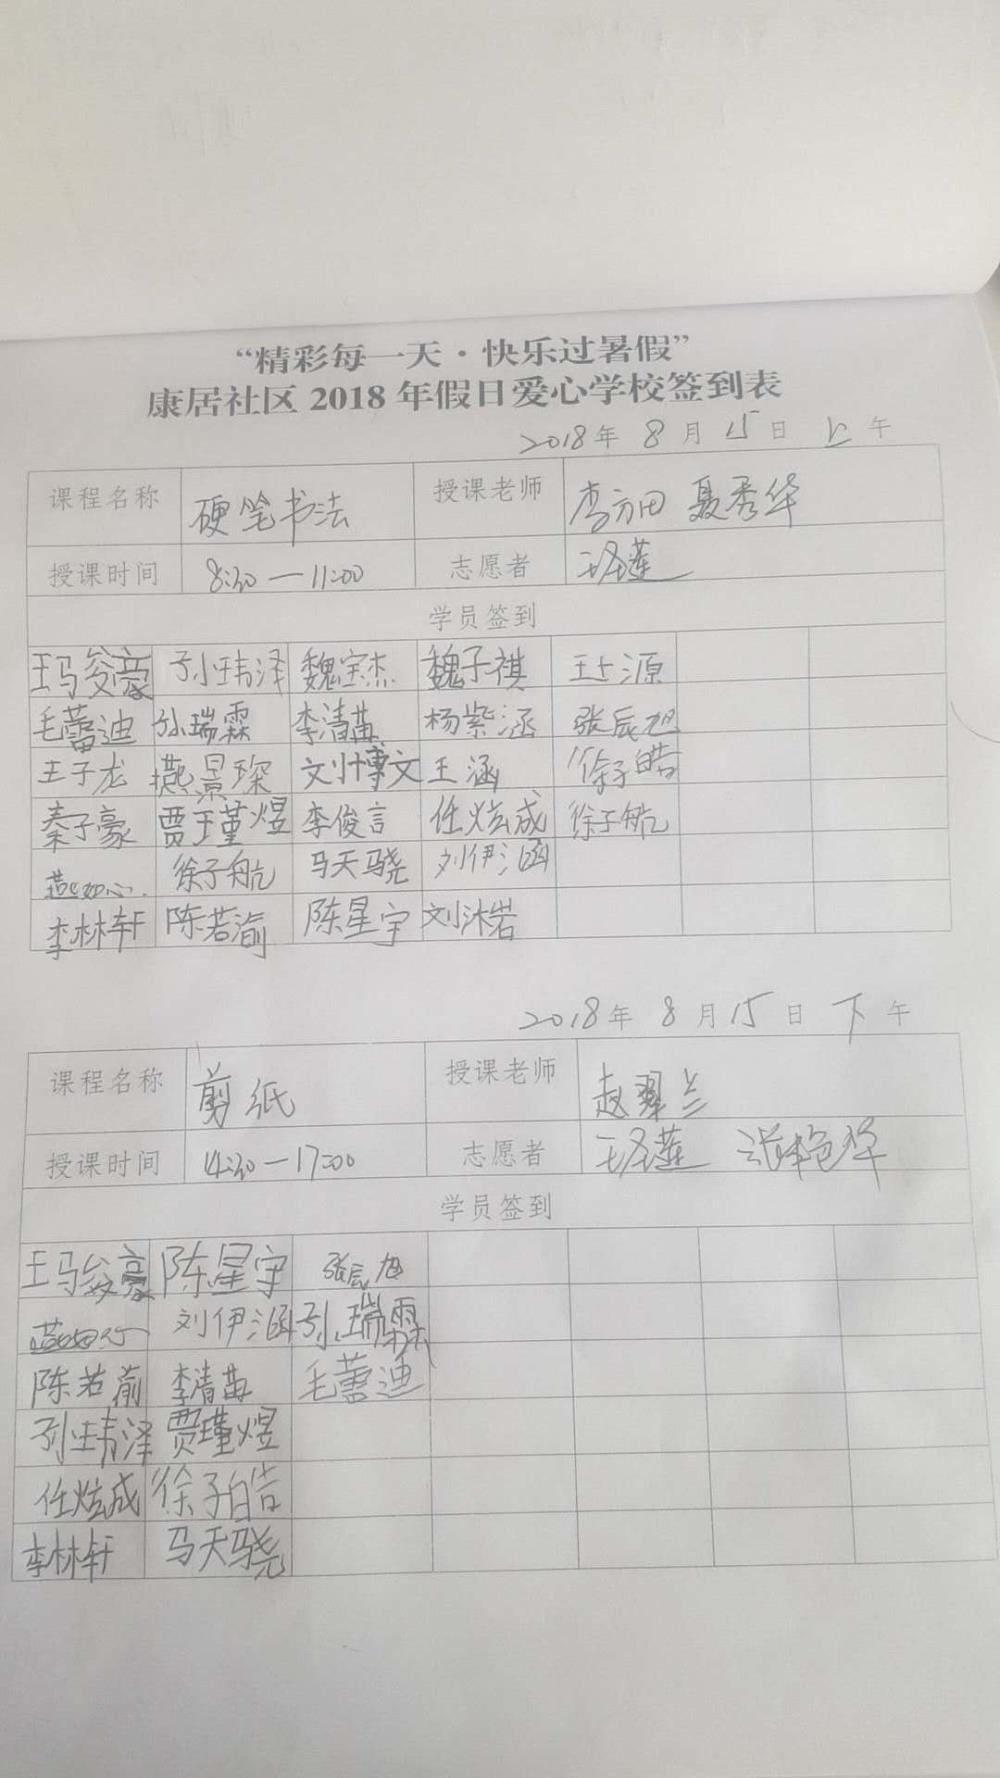 “精彩每一天·快乐过暑假”
康居社区 2018 年假日爱心学校签到表
2018年 8 月 15 日 上 午
课程名称 硬笔书法 授课老师 李方田 聂秀华
授课时间 8:30—11:00 志愿者 王圣莲
学员签到
王马俊豪 孙玮泽 魏宝杰 魏子祺 王士源
毛蕾迪 孙瑞霖 李清苗 杨紫涵 张辰旭
王子龙 燕景琛 刘博文 王涵 徐子皓
秦子豪 贾瑾煜 李俊言 任炫成 徐子航
燕如心 徐子航 马天骁 刘伊涵
李林轩 陈若渝 陈星宇 刘沐岩
2018年 8 月 15 日 下 午
课程名称 剪纸 授课老师 赵翠兰
授课时间 14:30—17:00 志愿者 王圣莲 张艳华
学员签到
王马俊豪 陈星宇 张辰旭
燕如心 刘伊涵 孙瑞霖
陈若渝 李清苗 毛蕾迪
孙玮泽 贾瑾煜
任炫成 徐子皓
李林轩 马天骁